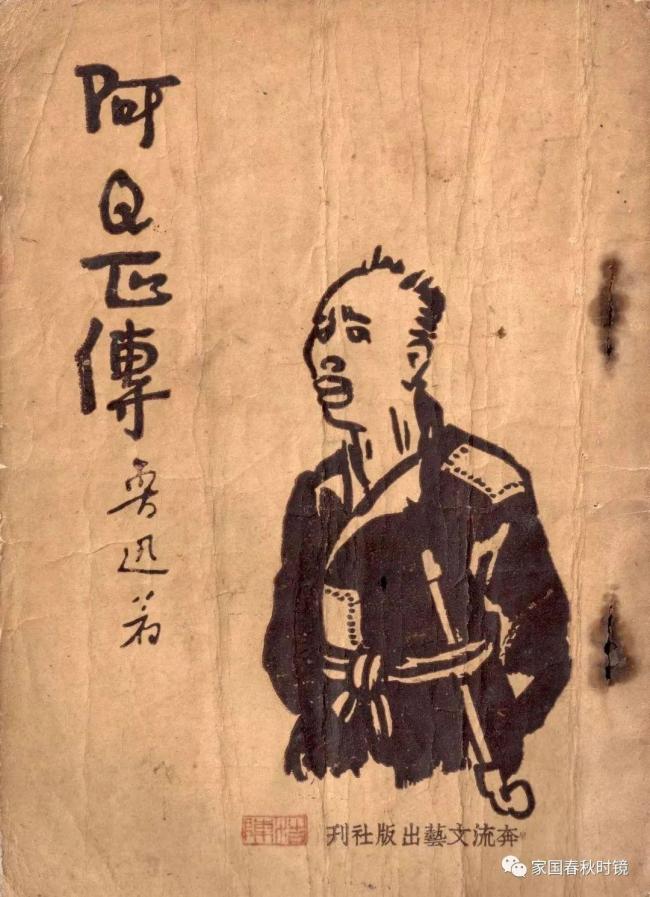 阿Q正傳
魯迅著
奔流文藝出版社刊
家国春秋时镜